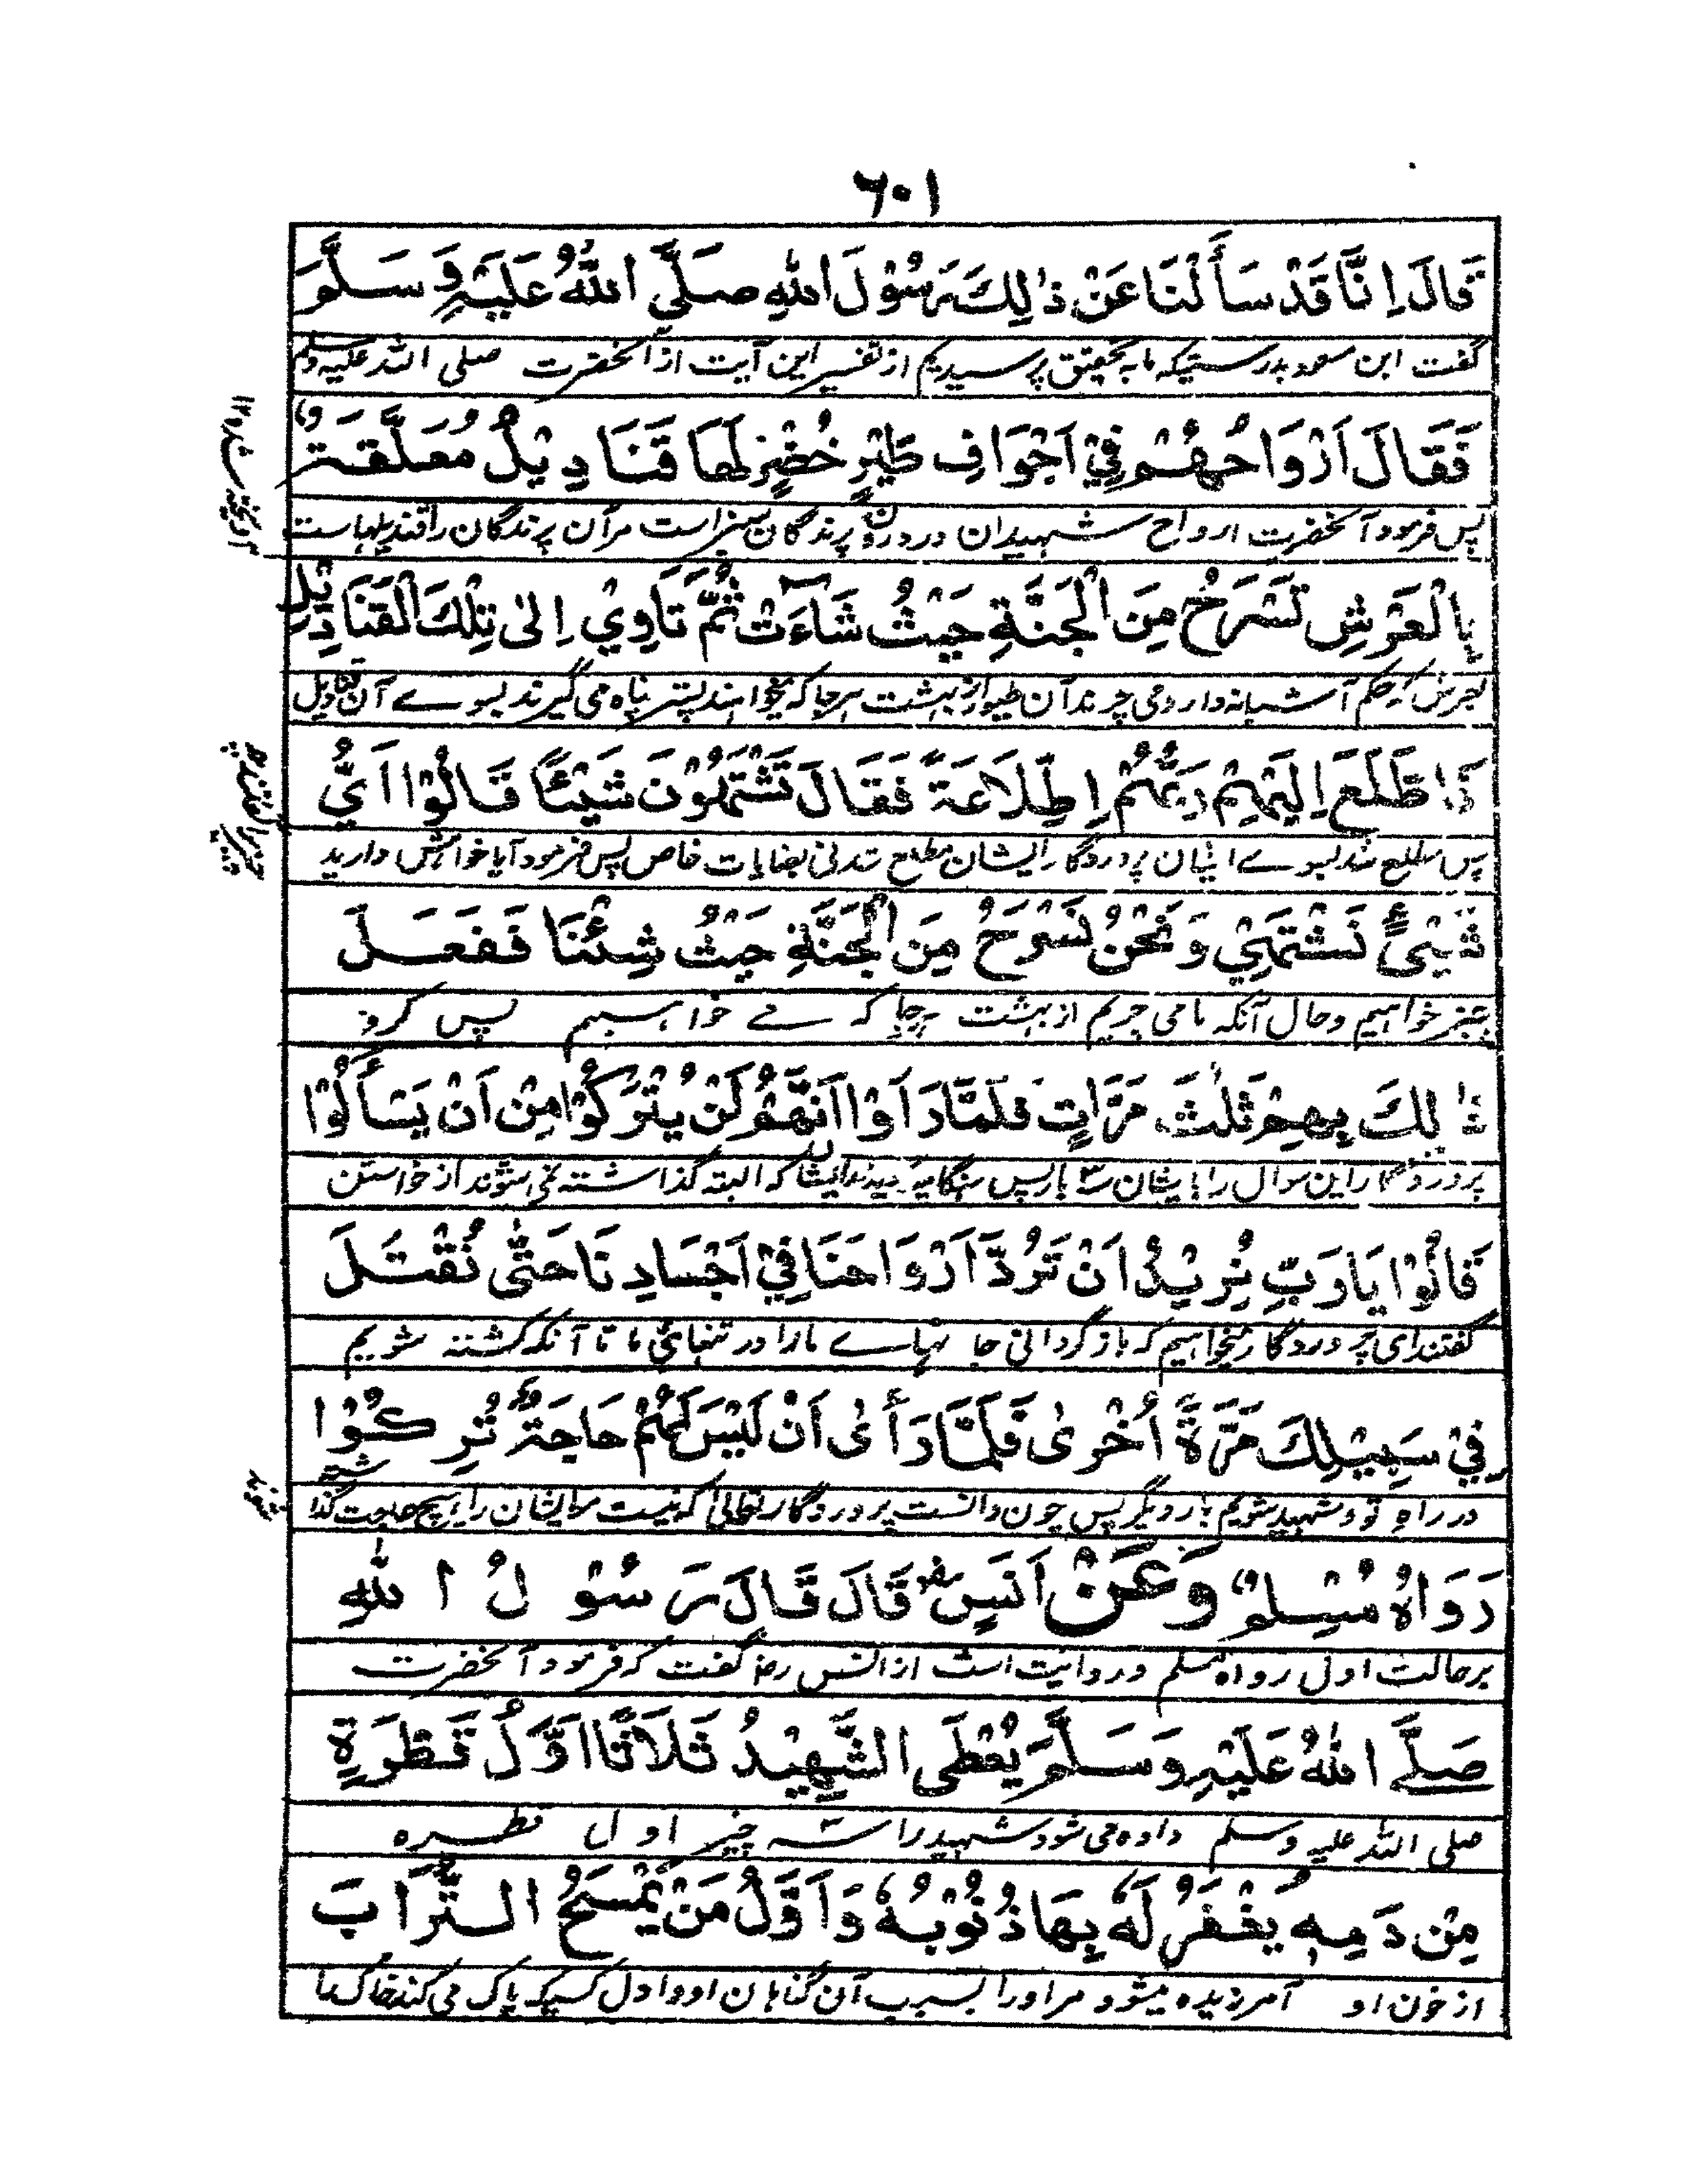 ٦٠١
قَالَ اِنَّا قَدْ سَأَلْنَا عَنْ ذٰلِكَ رَسُوْلَ اللهِ صَلَّى اللهُ عَلَيْهِ وَسَلَّمَ
گفت ابن مسعود بدرستیکه ما به تحقیق پرسیدیم از تفسیر این آیت از آنحضرت صلی الله علیه وسلم
فَقَالَ اَرْوَاحُهُمْ فِيْ اَجْوَافِ طَيْرٍ خُضْرٍ لَهَا قَنَادِيْلُ مُعَلَّقَةٌ
پس فرمود آنحضرت ارواح شهیدان در درون پرندگان سبز است مر آن پرندگان را قندیلهاست
آویخته شده ۱۲
بِالْعَرْشِ تَسْرَحُ مِنَ الْجَنَّةِ حَيْثُ شَاءَتْ ثُمَّ تَاْوِيْ اِلٰى تِلْكَ الْقَنَادِيْلِ
بعرش که حکم آشیانه دارد می چرند آن طیور از بهشت هر جا که بخواهند پستر پناه می گیرند بسوے آن قنادیل
فَاطَّلَعَ اِلَيْهِمْ رَبُّهُمْ اِطِّلَاعَةً فَقَالَ تَشْتَهُوْنَ شَيْئًا قَالُوْا اَيَّ
پس مطلع شد بسوے ایشان پروردگار ایشان مطلع شدنی بعنایات خاص پس فرمود آیا خواهش دارید
شَيْئٍ نَشْتَهِيْ وَنَحْنُ نَسْرَحُ مِنَ الْجَنَّةِ حَيْثُ شِئْنَا فَفَعَلَ
چیز خواهیم و حال آنکه ما می چریم از بهشت هر جا که مے خواهیم پس کرد
ذٰلِكَ بِهِمْ ثَلٰثَ مَرَّاتٍ فَلَمَّا رَاَوْا اَنَّهُمْ لَنْ يُتْرَكُوْا مِنْ اَنْ يَسْأَلُوْا
پروردگار این سوال را بایشان سه بار پس هنگامیکه دیدند ایشان که البته گذاشته نمی شوند از خواستن
قَالُوْا يَا رَبِّ نُرِيْدُ اَنْ تَرُدَّ اَرْوَاحَنَا فِيْ اَجْسَادِنَا حَتّٰى نُقْتَلَ
گفتند ای پروردگار میخواهیم که باز گردانی جانهاے ما را در تنهائی ما تا آنکه کشته شویم
فِيْ سَبِيْلِكَ مَرَّةً اُخْرٰى فَلَمَّا رَأٰى اَنْ لَيْسَ لَهُمْ حَاجَةٌ تُرِكُوْا
در راهِ تو و شهید شویم بار دیگر پس چون دانست پروردگار تعالی که نیست مر ایشان را هیچ حاجت گذاشته
شوند
رَوَاهُ مُسْلِمٌ وَعَنْ اَنَسٍ رض قَالَ قَالَ رَسُوْلُ اللهِ
بر حالت اول رواه مسلم و روایت است از انس رض گفت که فرمود آنحضرت
صَلَّى اللهُ عَلَيْهِ وَسَلَّمَ يُعْطَى الشَّهِيْدُ ثَلَاثًا اَوَّلُ قَطْرَةٍ
صلی الله علیه وسلم داده می شود شهید را سه چیز اول قطره
مِنْ دَمِهٖ يُغْفَرُ لَهٗ بِهَا ذُنُوْبُهٗ وَاَوَّلُ مَنْ يَمْسَحُ التُّرَابَ
از خون او آمرزیده میشود مر اورا بسبب آن گناهان او و اول کسیکه پاک می کند خاک را